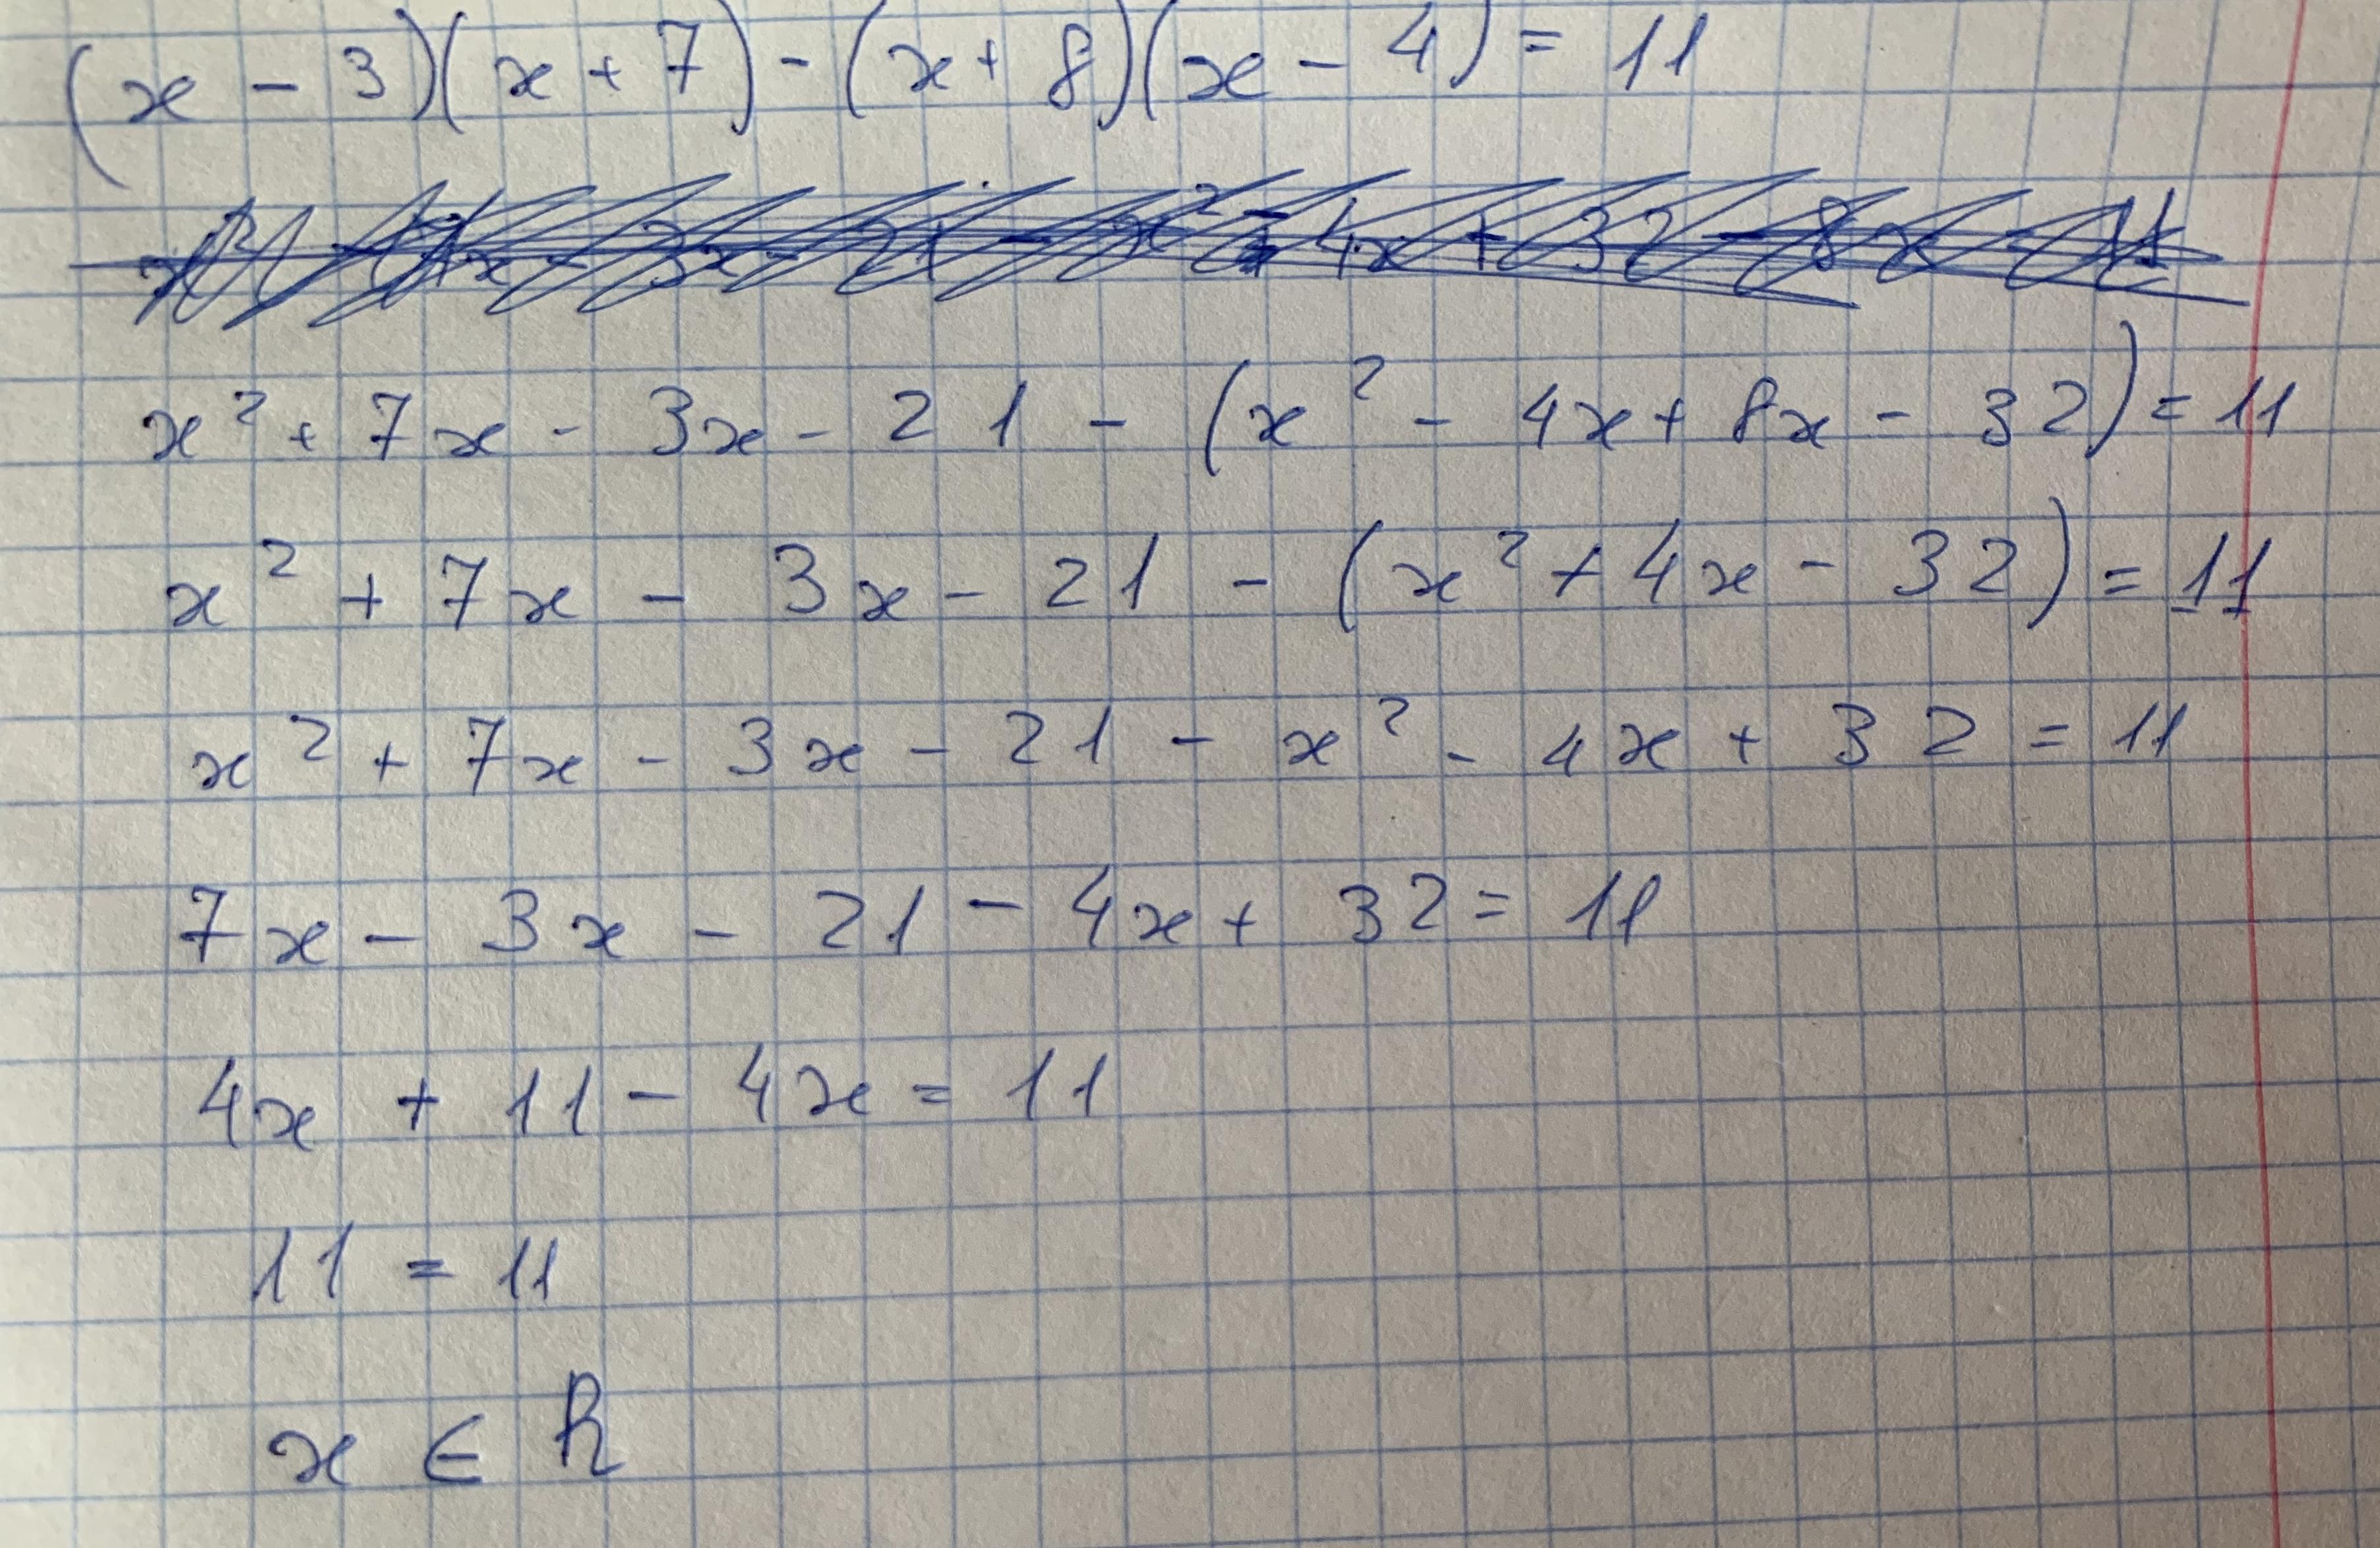 (x - 3)(x + 7) - (x + 8)(x - 4) = 11
x² + 7x - 3x - 21 - (x² - 4x + 8x - 32) = 11
x² + 7x - 3x - 21 - (x² + 4x - 32) = 11
x² + 7x - 3x - 21 - x² - 4x + 32 = 11
7x - 3x - 21 - 4x + 32 = 11
4x + 11 - 4x = 11
11 = 11
x ∈ R